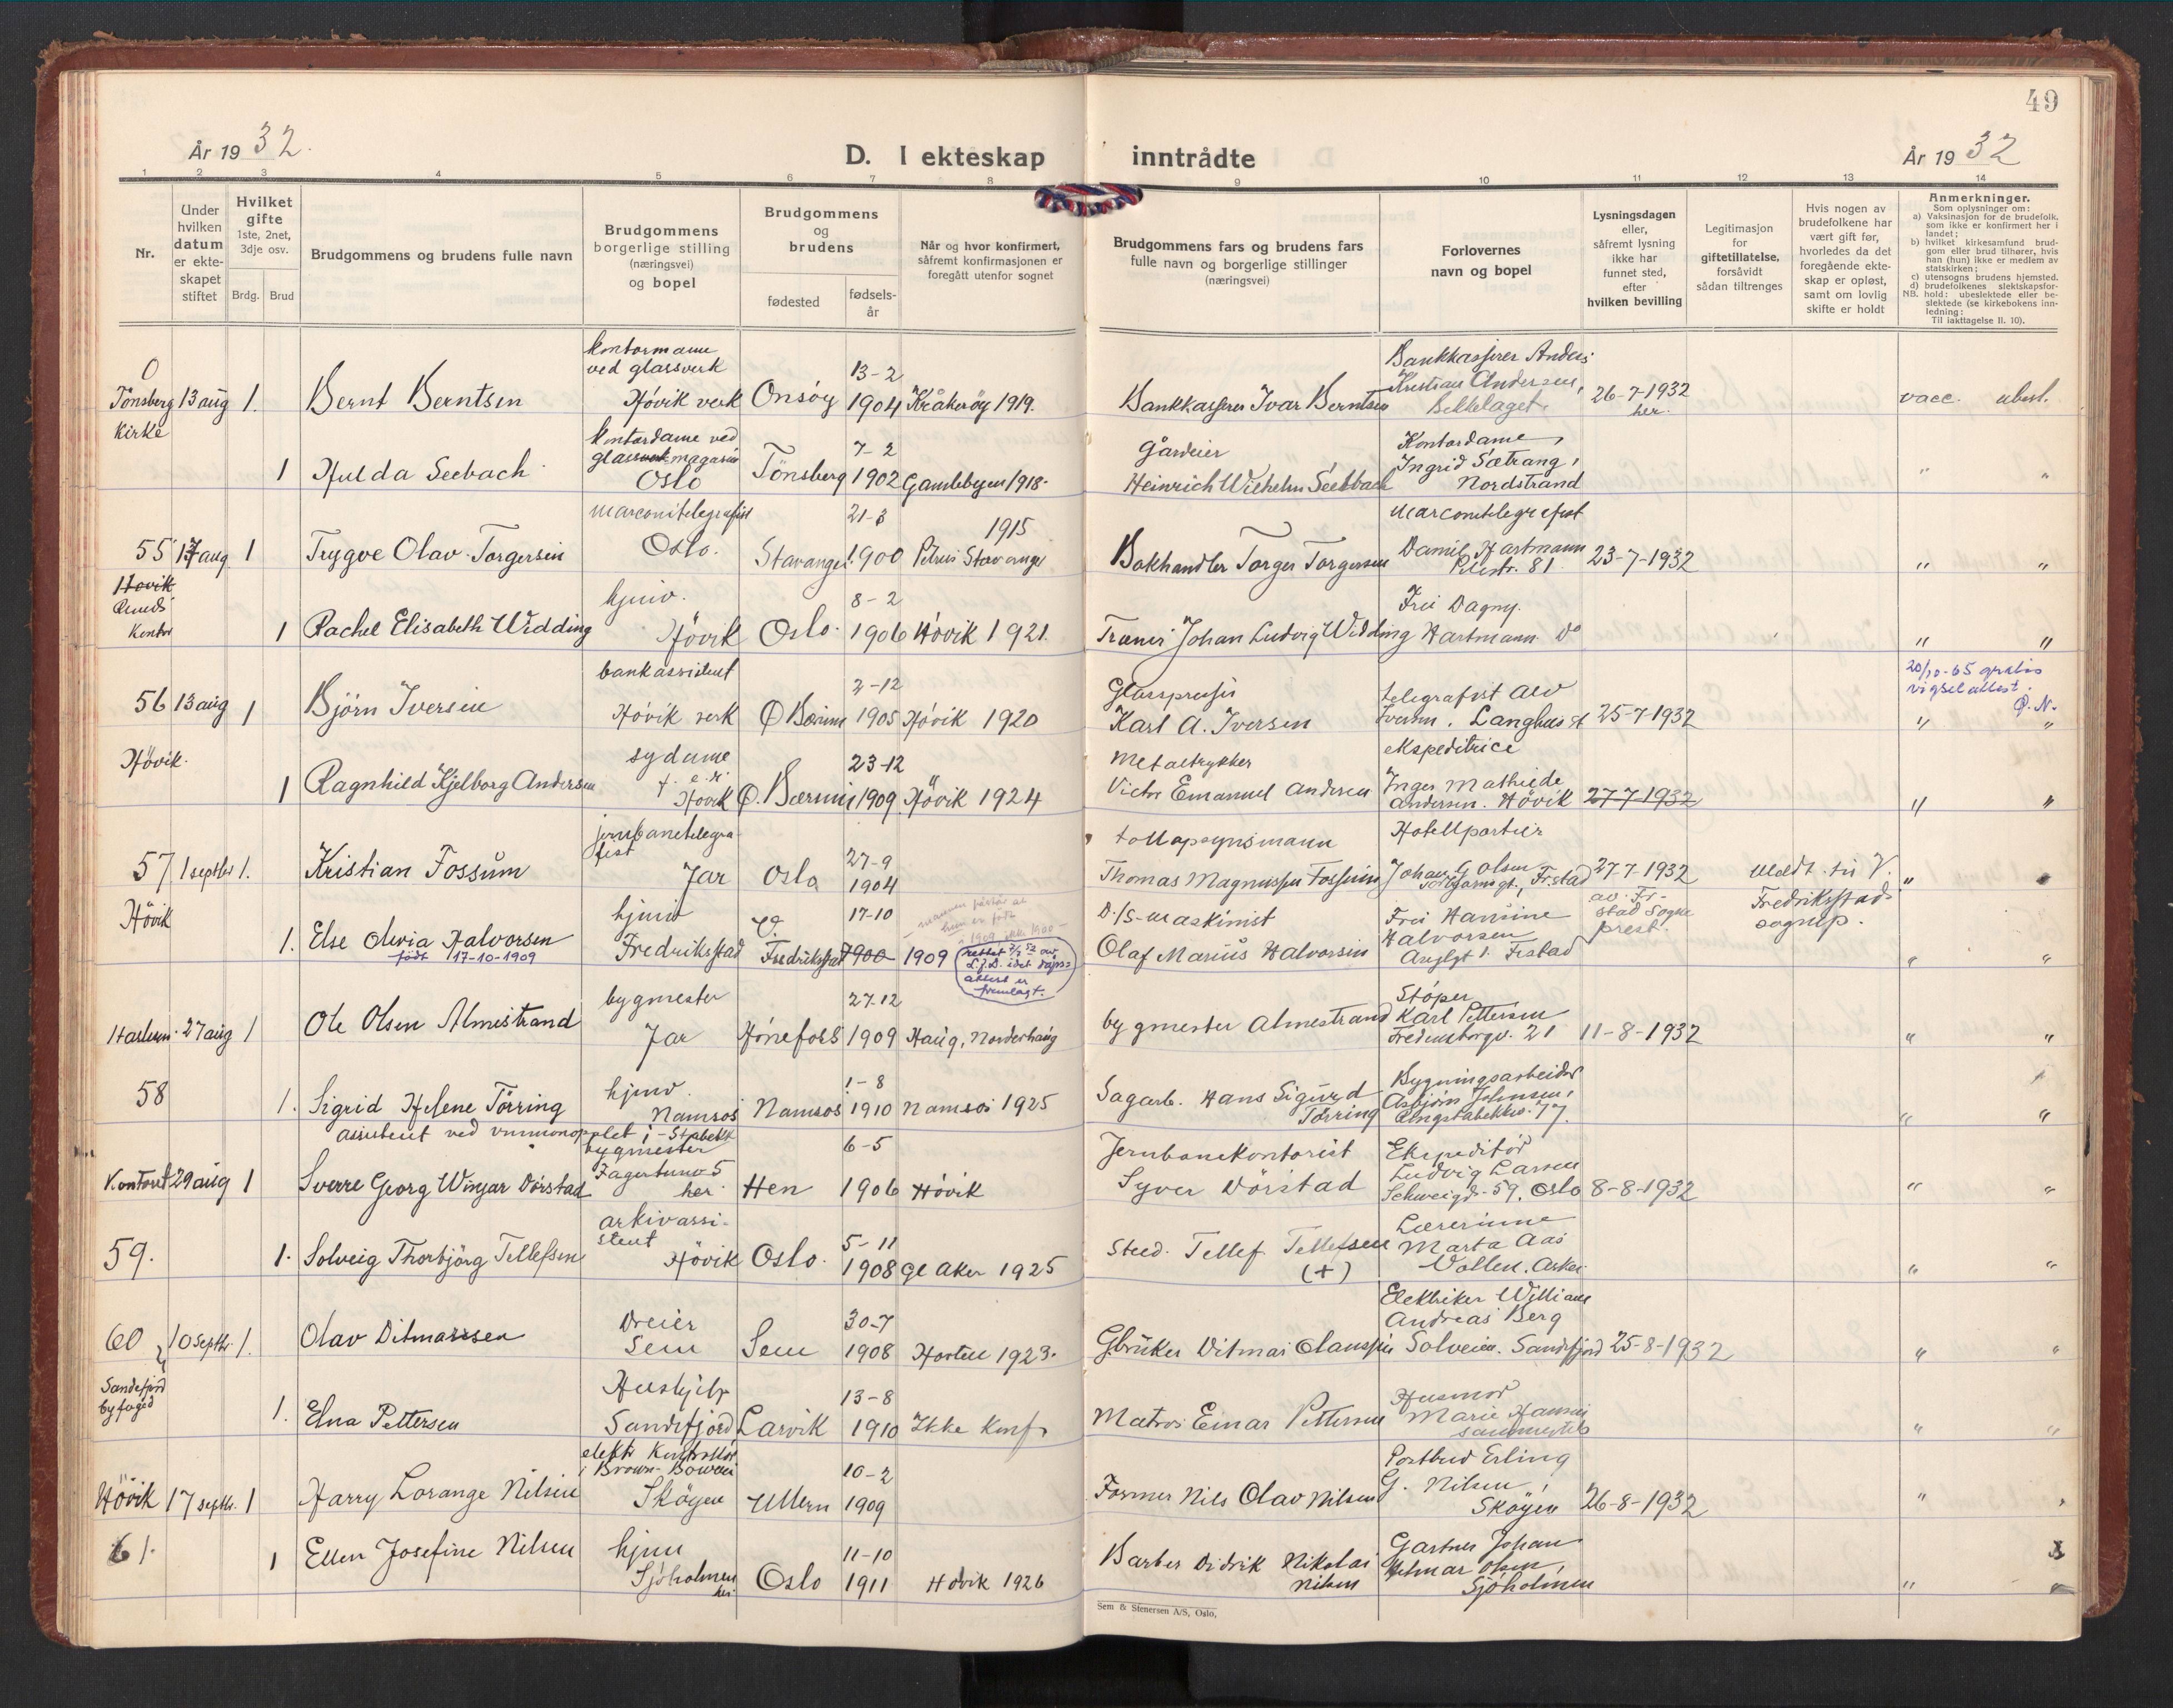 49
År 1932.
D. I ekteskap inntrådte
År 1932
1 2 3 4 5 6 7 8 9 10 11 12 13 14
Nr.
Under hvilken datum er ekteskapet stiftet
Hvilket gifte
1ste, 2net, 3dje osv.
Brdg. Brud
Brudgommens og brudens fulle navn
Brudgommens borgerlige stilling (næringsvei) og bopel
Brudgommens og brudens
fødested
fødselsår
Når og hvor konfirmert, såfremt konfirmasjonen er foregått utenfor sognet
Brudgommens fars og brudens fars fulle navn og borgerlige stillinger (næringsvei)
Forlovernes navn og bopel
Lysningsdagen eller, såfremt lysning ikke har funnet sted, efter hvilken bevilling
Legitimasjon for giftetillatelse, forsåvidt sådan tiltrenges
Hvis nogen av brudefolkene har vært gift før, hvorledes da det foregående ekteskap er opløst, samt om lovlig skifte er holdt
Anmerkninger.
Som oplysninger om:
a) Vaksinasjon for de brudefolk, som ikke er konfirmert her i landet;
b) hvilket kirkesamfund brudgom eller brud tilhører, hvis han (hun) ikke er medlem av statskirken;
c) utensogns brudens hjemsted.
d) brudefolkenes slektskapsforhold: ubeslektede eller beslektede (se kirkebokens innledning:
NB.
Til iakttagelse II. 10).
0
Tönsberg kirke 13 aug 1. Bernt Berntsen
kontormann ved glassverk Hövik verk
Onsöy 13-2 1904 Kråkeröy 1919.
Bankkasserer Ivar Berntsen
Bankkasserer Anders Kristian Andersen, Bekkelaget.
26-7-1932 her.
vacc. ubesl.
1 Hulda Seebach
kontordame ved glassverk magasin Oslo
Tönsberg 7-2 1902 Gamlebyen 1918.
Gårdeier Heinrich Wilhelm Seebach
Kontordame, Ingrid Sætrang, Nordstrand
" "
55 17 aug 1 Trygve Olav Torgersen
marconitelegrafist Oslo.
Stavanger 21-3 1900 1915 Petrus Stavanger
Bokhandler Torger Torgersen
Marconitelegrafist Daniel Hartmann Pilestr. 81
23-7-1932
" "
Hövik
Kontor
1 Rachel Elisabeth Widding
hjmv. Hövik
Oslo. 8-2 1906 Hövik 1921.
Johan Ludvig Widding
Frii Dagny. Hartmann Do
" "
56 13 aug 1 Björn Iversen
bankassistent Hövik verk
Ø Bærum 2-12 1905 Hövik 1920
Karl A. Iversen
telegrafist Iversen. Langhus st
25-7-1932
20/10-65 gratis vigselattest. O.N.
" "
Hövik.
1 Ragnhild Kjelborg Andersen
sydame Hövik
Ø. Bærum 23-12 1909. Hövik 1924
Metaltrykker Victor Emanuel Andersen
ekspeditrice Inger Mathilde Andersen. Hövik
27-7-1932
" "
57 1 septbr 1. Kristian Fossum
jernbanetelegrafist Jar
Oslo 27-9 1904
Thomas Magnussen Fossum
Hotellportier Johan G Olsen Fr.stad
27-7-1932 av Fr-stad Sogneprest.
meldt til V. Fredriksstad sognep.
Hövik
1. Else Olivia Halvorsen
født 17-10-1909
hjmv Fredriksstad
V. Fredriksstad 17-10 1900 1909
rettet av L.J.D. idet dåpsattest er fremlagt.
D./S-maskinist Olaf Marius Halvorsen
Frii Hansine Halvorsen Fr.stad
" "
Haslum 27 aug 1 Ole Olsen Almestrand
bygmester Jar
Hönefoss 27.12 1909 Haug, Norderhaug
bygmester Almestrand
Støper Karl Pettersen Fredensborgv. 21
11-8-1932
" "
58
1. Sigrid Helene Törring
hjmv. Namsos
Namsos 1-8 1910 Namsos 1925
Sagarb. Hans Sigurd Törring
Bygningsarbeider Asbjörn Johnsen, 77.
" "
assistent ved vinmonopolet i Stabekk
Kontoret 29 aug 1 Sverre Georg Winjar Dörstad
bygmester Fagertunv 5 her
Hen 6-5 1906 Hövik
Jernbanekontorist Syver Dörstad
Ekspeditör Ludvig Larsen Schweigds. 59, Oslo
8-8-1932
" "
59.
1. Solveig Thorbjörg Tellefsen
arkivassistent Hövik
Oslo. 5-11 1908 Gl Aker 1925
Tellef Tellefsen (+)
Lærerinne Marta Aas Vollen. Asker
" "
60 10 septbr. 1. Olav Ditmarssen
Dreier Sem
Sem 30-7 1908 Horten 1923.
Gbruker Ditmar Olaussen
Elektriker William Andreas Berg Solveien. Sandefjord
25-8-1932
" "
Sandefjord byfoged
1. Elna Pettersen
Hushjelp Sandefjord
Larvik 13-8 1910 Ikke konf.
Matros Einar Pettersen
Husmor Marie Hansen sammesteds
" "
Hövik 17 septbr. 1 Harry Lorange Nilsen
elektr kontrollör i Brown-Boweri Sköyen
Ullern 10-2 1909
Former Nils Olav Nilsen
Postbud Erling G. Nilsen, Sköyen
26-8-1932
"
61.
1 Ellen Josefine Nilsen
hjmv Sjöholmen her
Oslo 11-10 1911 Hövik 1926
Barber Didrik Nikolai Nilsen
Gartner Johan Hilmar Olsen, Sjöholmen
" "
Sem & Stenersen A/S, Oslo,